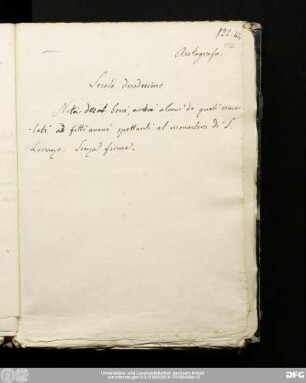 122.
Autografo.
Secolo duodecimo
Nota beni, alcuni de' quali vinco-
lati ad fitti annui spettanti al monastero di S.
Lorenzo. Senza firma.
Universitäts- und Landesbibliothek Sachsen-Anhalt
DFG